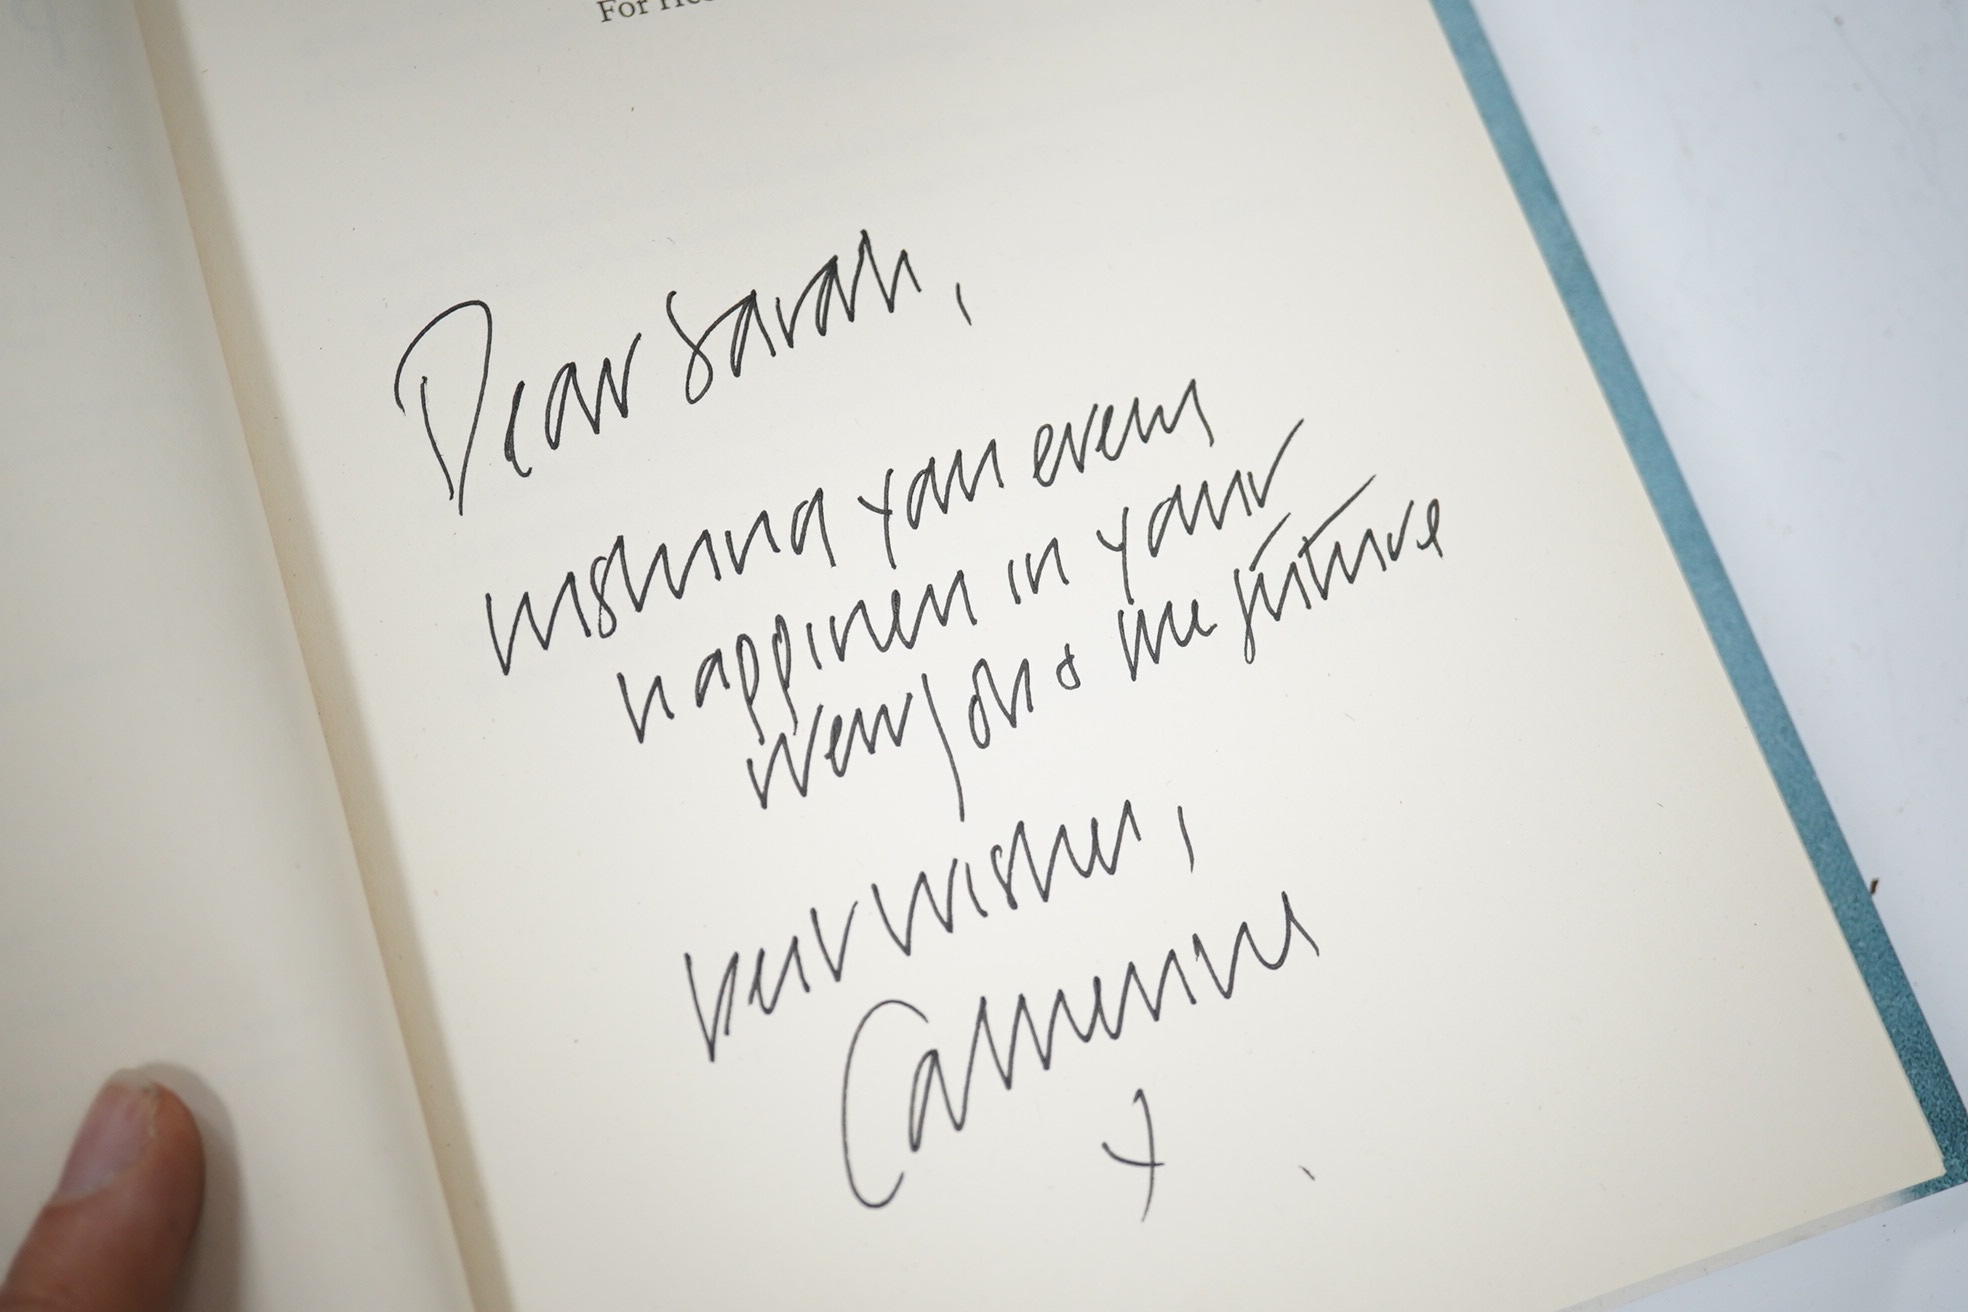 For
Dear Sarah,
wishing you every
happiness in your
new job & the future
best wishes,
Catherine
x